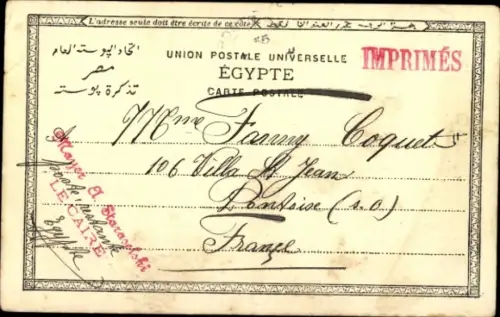 L'adresse seule doit être écrite de ce côté
اتحاد البوستة العام
مصر
تذكرة بوستة
UNION POSTALE UNIVERSELLE
ÉGYPTE
CARTE POSTALE
IMPRIMÉS
Mme Fanny Coquet
106 Villa St Jean
Pontoise (S.O.)
France
LE CAIRE
poste restante
Egypte